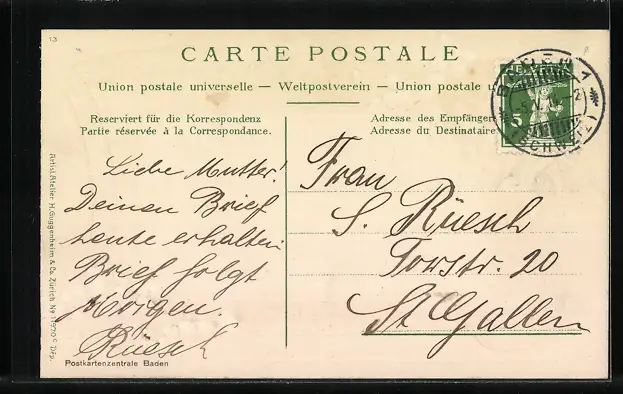 13
CARTE POSTALE
Union postale universelle — Weltpostverein — Union postale u
Reserviert für die Korrespondenz
Partie réservée à la Correspondance.
Adresse des Empfänger
Adresse du Destinataire
HELVETIA
5
(SCHWEIZ)
Liebe Mutter!
Deinen Brief
heute erhalten
Brief folgt
Morgen.
Rüesch
Frau
S. Rüesch
Torstr. 20
St. Gallen
Postkartenzentrale Baden
Artist. Atelier H. Guggenheim & Co. Zürich No 11970 Dép.